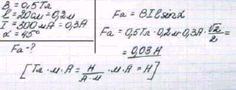 B = 0,5Тл
l = 200мм = 0,2м
I = 300мА = 0,3А
α = 45°
Fa - ?
Fa = BIlsinα
Fa = 0,5Тл · 0,2м · 0,3А · √2/2 =
= 0,03Н
[Тл · м · А = Н/А·м · м · А = Н]